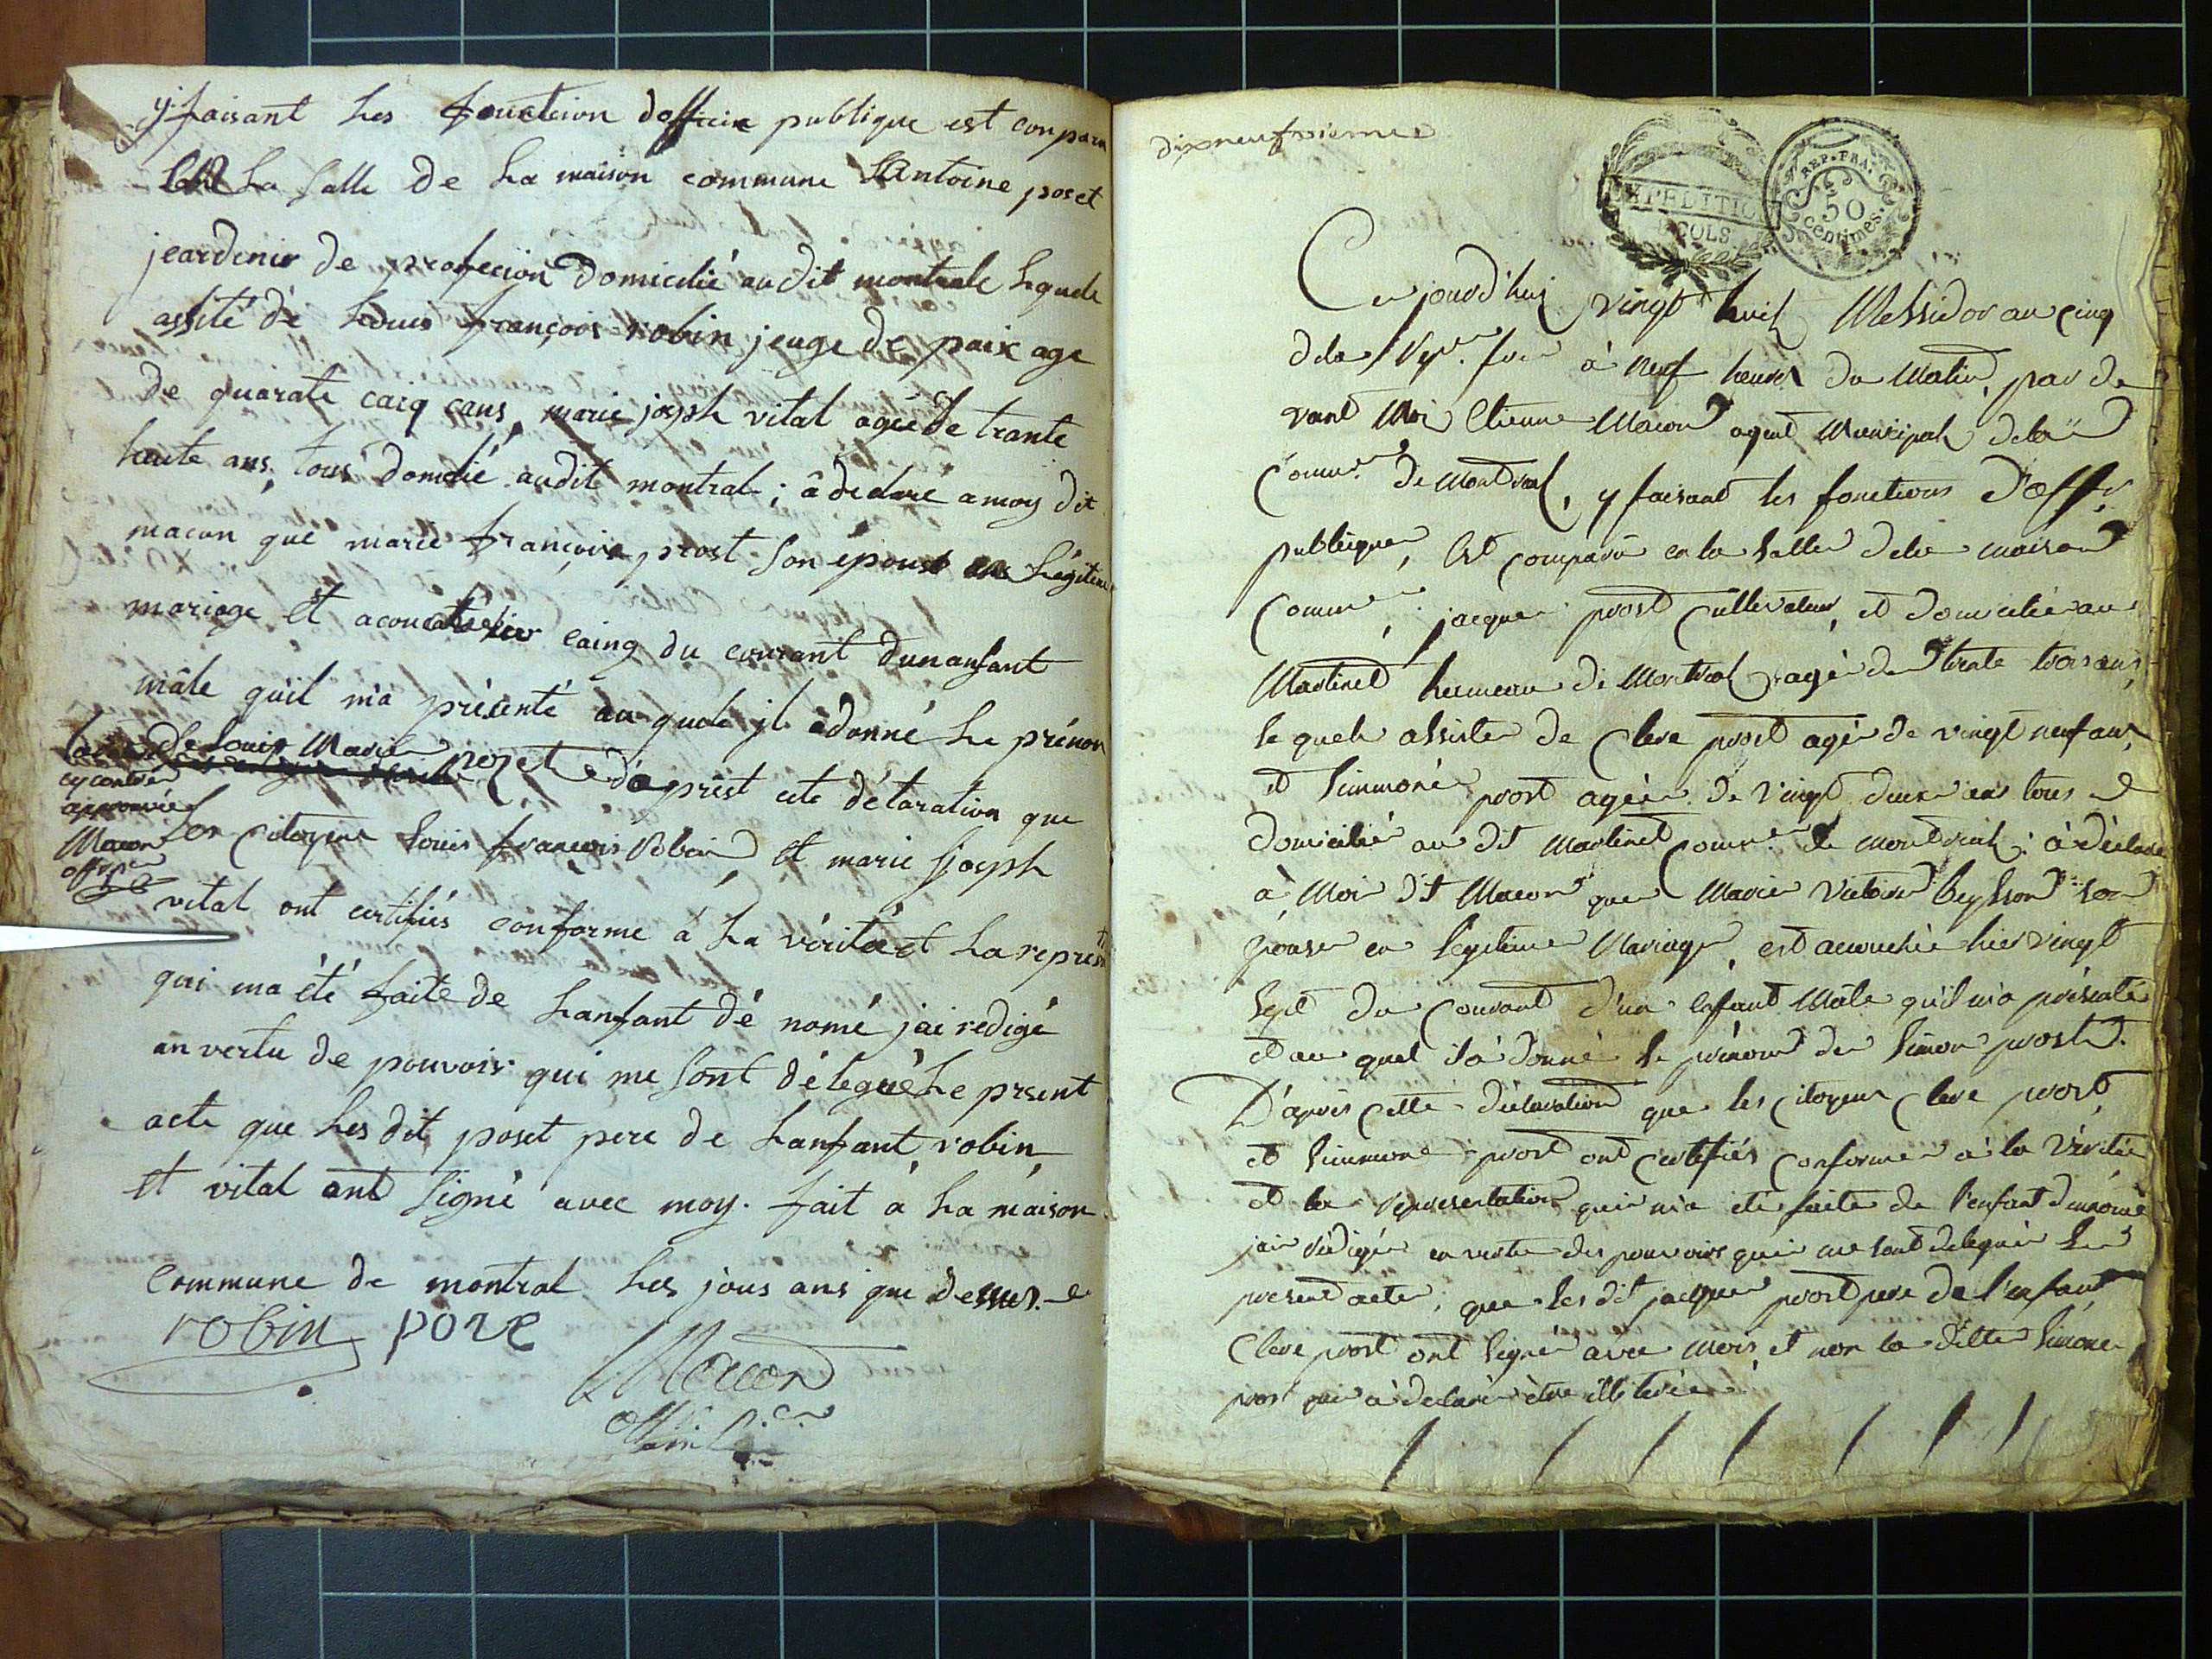 y faisant les fonction dofficie publique est conparu
la salle de la maison commune Antoine poset
jeardinir de profecion Domicilié audit montrale lequele
assité de Louis françois robin jeuge de paix age
de quarate cainq cans, marie joseph vital agée de trante
huite ans, tous domclié audit montral; a declare a moy dit
macon que marie françoise prost son épouse an légitime
mariage et acouchée hier cainq du courant dun anfant
mâle quil m'a présenté au quele jl a donné le prénon
de Louis Marie pozet d'aprest cete déclaration que
Les Citoyens Louis françois Robin, et marie joseph
vital ont certifiés conforme a la vérité et la represti
qui ma été faite de lanfant dé nomé jai redigé
an vertu de pouvoir qui me sont délegué le present
acte que les dit poset pere de lanfant, robin,
et vital ant signé avec moy. fait a la maison
commune de montral les jous ans que dessus
cy contre
approuvée
Macon
robin poze
Macon
dixneufviemme
EXPEDITION
SOLS
REP. FRA.
50
Centimes.
Ce jourd'huy vingt huit Messidor an cinq
dela à neuf heures du Matin, par de
vant Moi Etienne Macon agent Municipal dela
Comm.ne de Montreal, y faisant les fonctions D'off.er
publique, Est comparu en la salle dela maison
Commune jacque prost Cultivateur, et domicilié au
Martinet hameau de Montreal, agé de trate trois ans,
le quele assister de Clere prost agé de vingt neuf ans,
et simmone prost agée de Vingt deux ans tous
domicilié au dit Martinet Comm.e de montreal: a déclaré
à Moi dit Macon que Marie Victoire Beysson son
Epouse en legitime Mariage, est acouchée hier vingt
sept du Courant d'un enfant Mâle qu'il m'a présenté
et au quel il a donné le prénom de Simon prost.
D'aprés cette déclaration que les citoyens Clere prost
et simmone prost ont Certifiés Conforme à la Vérité
et la representation qui m'a été faite de l'enfant dénomé
jai rédigé en vertu des pouvoirs qui me sont delegués le
present acte, que les dit jacque prost pere de l'enfant
Clere prost ont signé avec Mois, et non la ditte simone
prost qui a declaré être illiterée